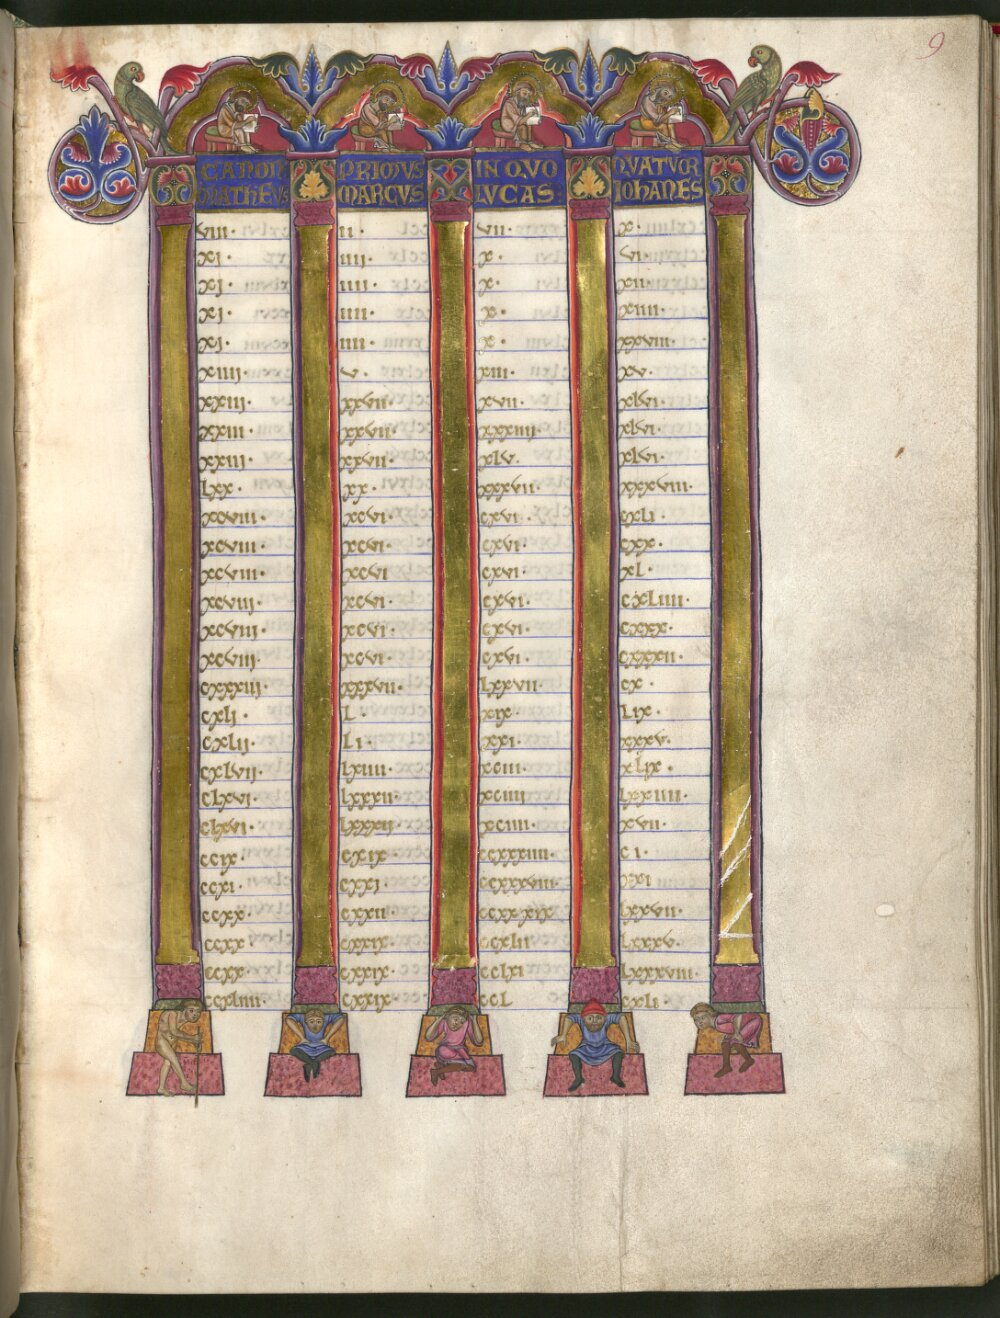 9
CANON PRIMUS IN QVO QVATVOR
MATHEVS MARCVS LVCAS IOHANES
viii· ii· vii· x·
xi· iiii· x· vi·
xi· iiii· x· xii·
xi· iiii· x· xiiii·
xi· iiii· x· xxviii·
xiiii· v· xiii· xv·
xxiii· xxvii· xvii· xlvi·
xxiii· xxvii· xxxiiii· xlvi·
xxiii· xxvii· xlv· xlvi·
lxx· xx· xxxvii· xxxviii·
xcviii· xcvi· cxvi· cxli·
xcviii· xcvi· cxvi· cxx·
xcviii· xcvi cxvi· xl·
xcviii· xcvi· cxvi· cxliiii·
xcviii· xcvi· cxvi· cxxx·
xcviii· xcvi· cxvi· cxxxii·
cxxxiii· xxxvii· lxxvii· cx·
cxli· l· xix· lix·
cxlii· li· xxi· xxxv·
cxlvii· lxiiii· xciii· xlix·
clxvi· lxxxii· xciiii lxxiiii·
clxvi· lxxxii· xciiii· xvii·
ccix· cxix· ccxxxiiii· ci·
ccxi· cxxi· ccxxxviii· xxi·
ccxx· cxxii· ccxxxix· lxxvii·
ccxx· cxxix· ccxlii· lxxxv·
ccxx· cxxix· cclxi· lxxxviii·
ccxliiii· cxxix· ccl cxli·